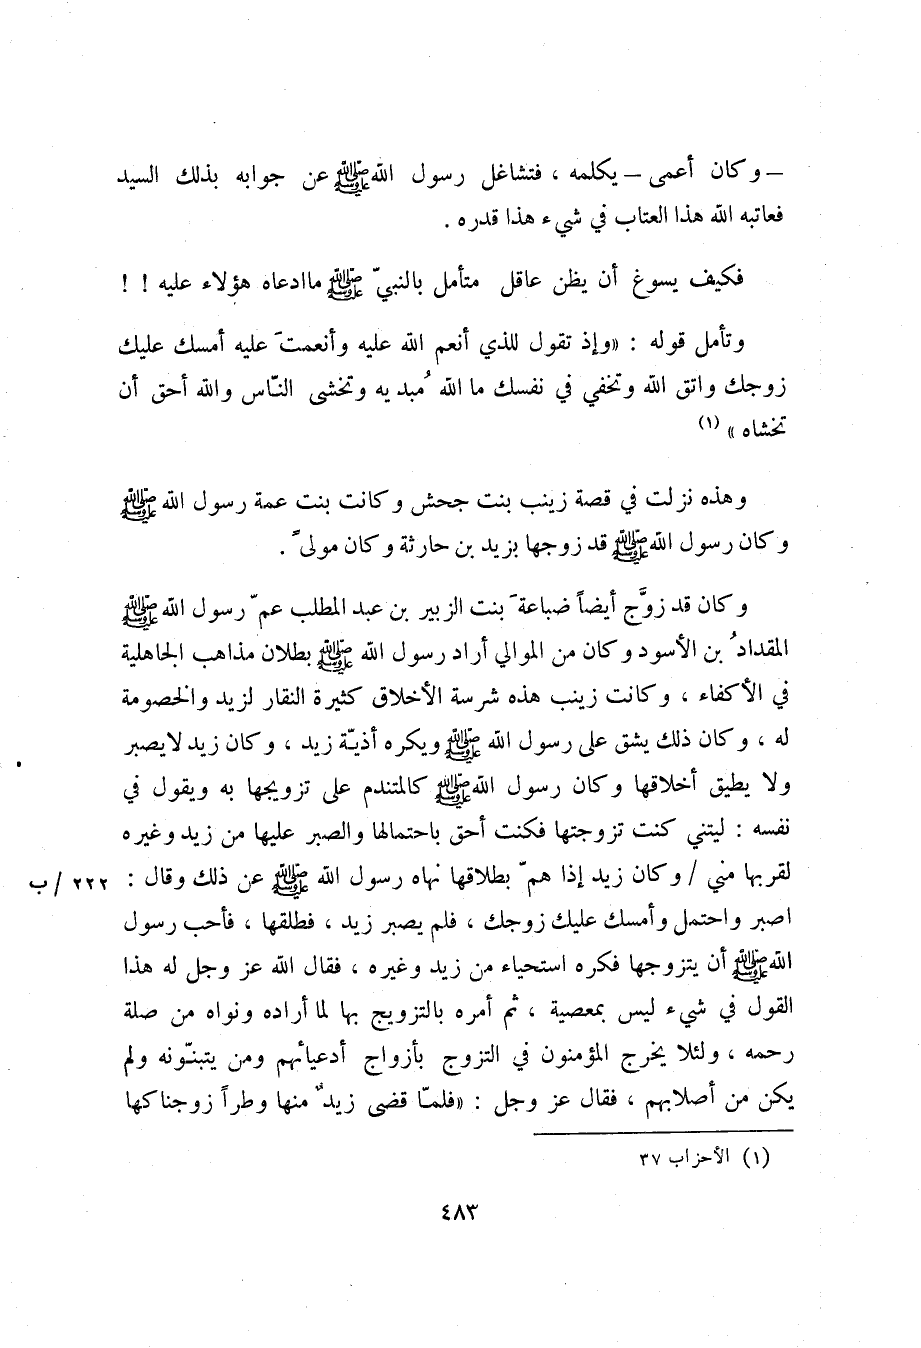 – وكان أعمى – يكلمه ، فتشاغل رسول الله ﷺ عن جوابه بذلك السيد
فعاتبه الله هذا العتاب في شيء هذا قدره .
فكيف يسوغ أن يظن عاقل متأمل بالنبيّ ﷺ ماادعاه هؤلاء عليه ! !
وتأمل قوله : «وإذ تقول للذي أنعم الله عليه وأنعمتَ عليه أمسك عليك
زوجك واتق الله وتخفي في نفسك ما الله مُبديه وتخشى النّاس والله أحق أن
تخشاه » (١)
وهذه نزلت في قصة زينب بنت جحش وكانت بنت عمة رسول الله ﷺ
وكان رسول الله ﷺ قد زوجها بزيد بن حارثة وكان مولىً .
وكان قد زوَّج أيضاً ضباعةَ بنت الزبير بن عبد المطلب عمّ رسول الله ﷺ
المقدادُ بن الأسود وكان من الموالي أراد رسول الله ﷺ بطلان مذاهب الجاهلية
في الأكفاء ، وكانت زينب هذه شرسة الأخلاق كثيرة النقار لزيد والخصومة
له ، وكان ذلك يشق على رسول الله ﷺ ويكره أذيّة زيد ، وكان زيد لايصبر
ولا يطيق أخلاقها وكان رسول الله ﷺ كالمتندم على تزويجها به ويقول في
نفسه : ليتني كنت تزوجتها فكنت أحق باحتمالها والصبر عليها من زيد وغيره
لقربها مني / وكان زيد إذا همّ بطلاقها نهاه رسول الله ﷺ عن ذلك وقال : ٢٢٢ /ب
اصبر واحتمل وأمسك عليك زوجك ، فلم يصبر زيد ، فطلقها ، فأحب رسول
الله ﷺ أن يتزوجها فكره استحياء من زيد وغيره ، فقال الله عز وجل له هذا
القول في شيء ليس بمعصية ، ثم أمره بالتزويج بها لما أراده ونواه من صلة
رحمه ، ولئلا يخرج المؤمنون في التزوج بأزواج أدعيائهم ومن يتبنّونه ولم
يكن من أصلابهم ، فقال عز وجل : «فلمّا قضى زيدٌ منها وطراً زوجناكها
(١) الأحزاب ٣٧
٤٨٣